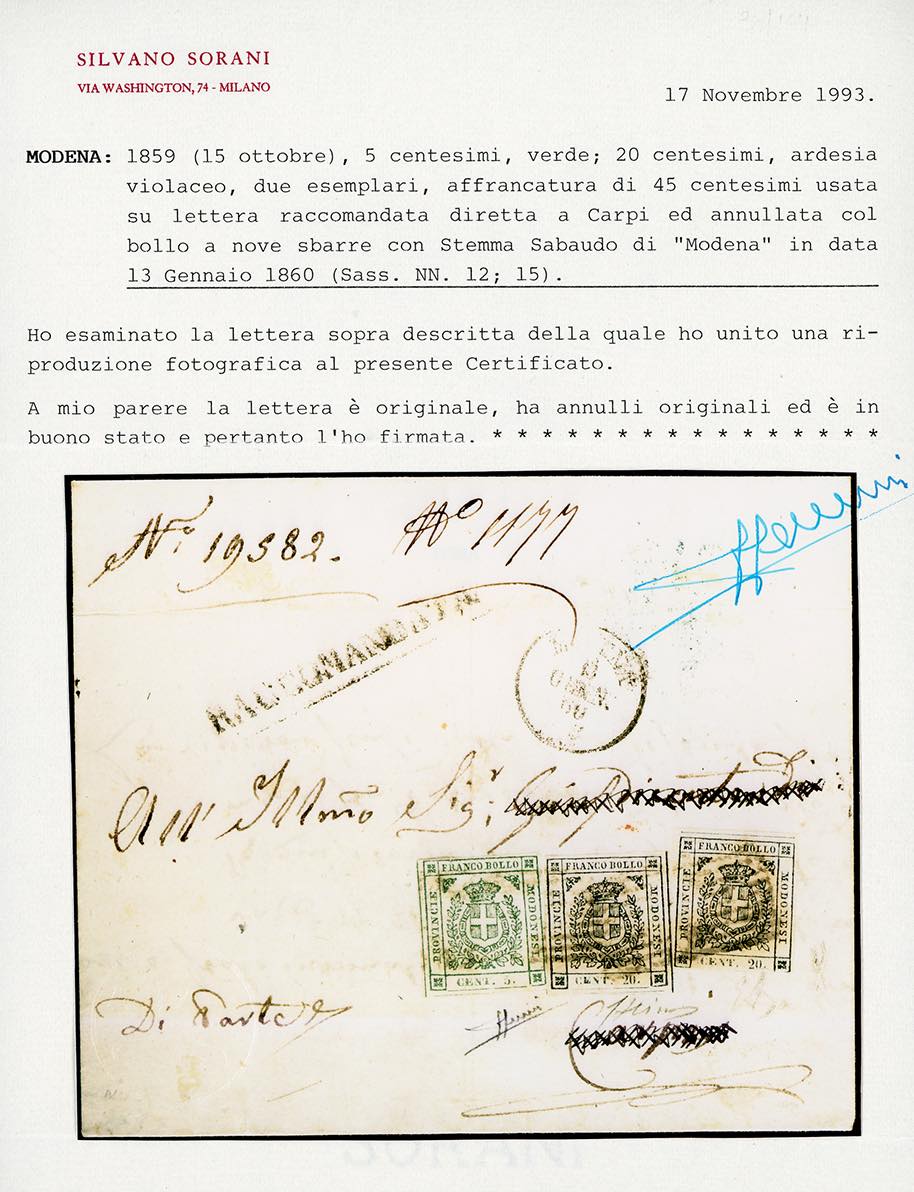 SILVANO SORANI
VIA WASHINGTON, 74 - MILANO
17 Novembre 1993.
MODENA: 1859 (15 ottobre), 5 centesimi, verde; 20 centesimi, ardesia
violaceo, due esemplari, affrancatura di 45 centesimi usata
su lettera raccomandata diretta a Carpi ed annullata col
bollo a nove sbarre con Stemma Sabaudo di "Modena" in data
13 Gennaio 1860 (Sass. NN. 12; 15).
Ho esaminato la lettera sopra descritta della quale ho unito una ri-
produzione fotografica al presente Certificato.
A mio parere la lettera è originale, ha annulli originali ed è in
buono stato e pertanto l'ho firmata. * * * * * * * * * * * * * * * *
Nº 19582. Nº 1177
All' Illmo Sigr
FRANCO BOLLO
PROVINCIE
MODONESI
CENT. 5.
FRANCO BOLLO
PROVINCIE
MODONESI
CENT. 20.
FRANCO BOLLO
PROVINCIE
MODONESI
CENT. 20.
Di